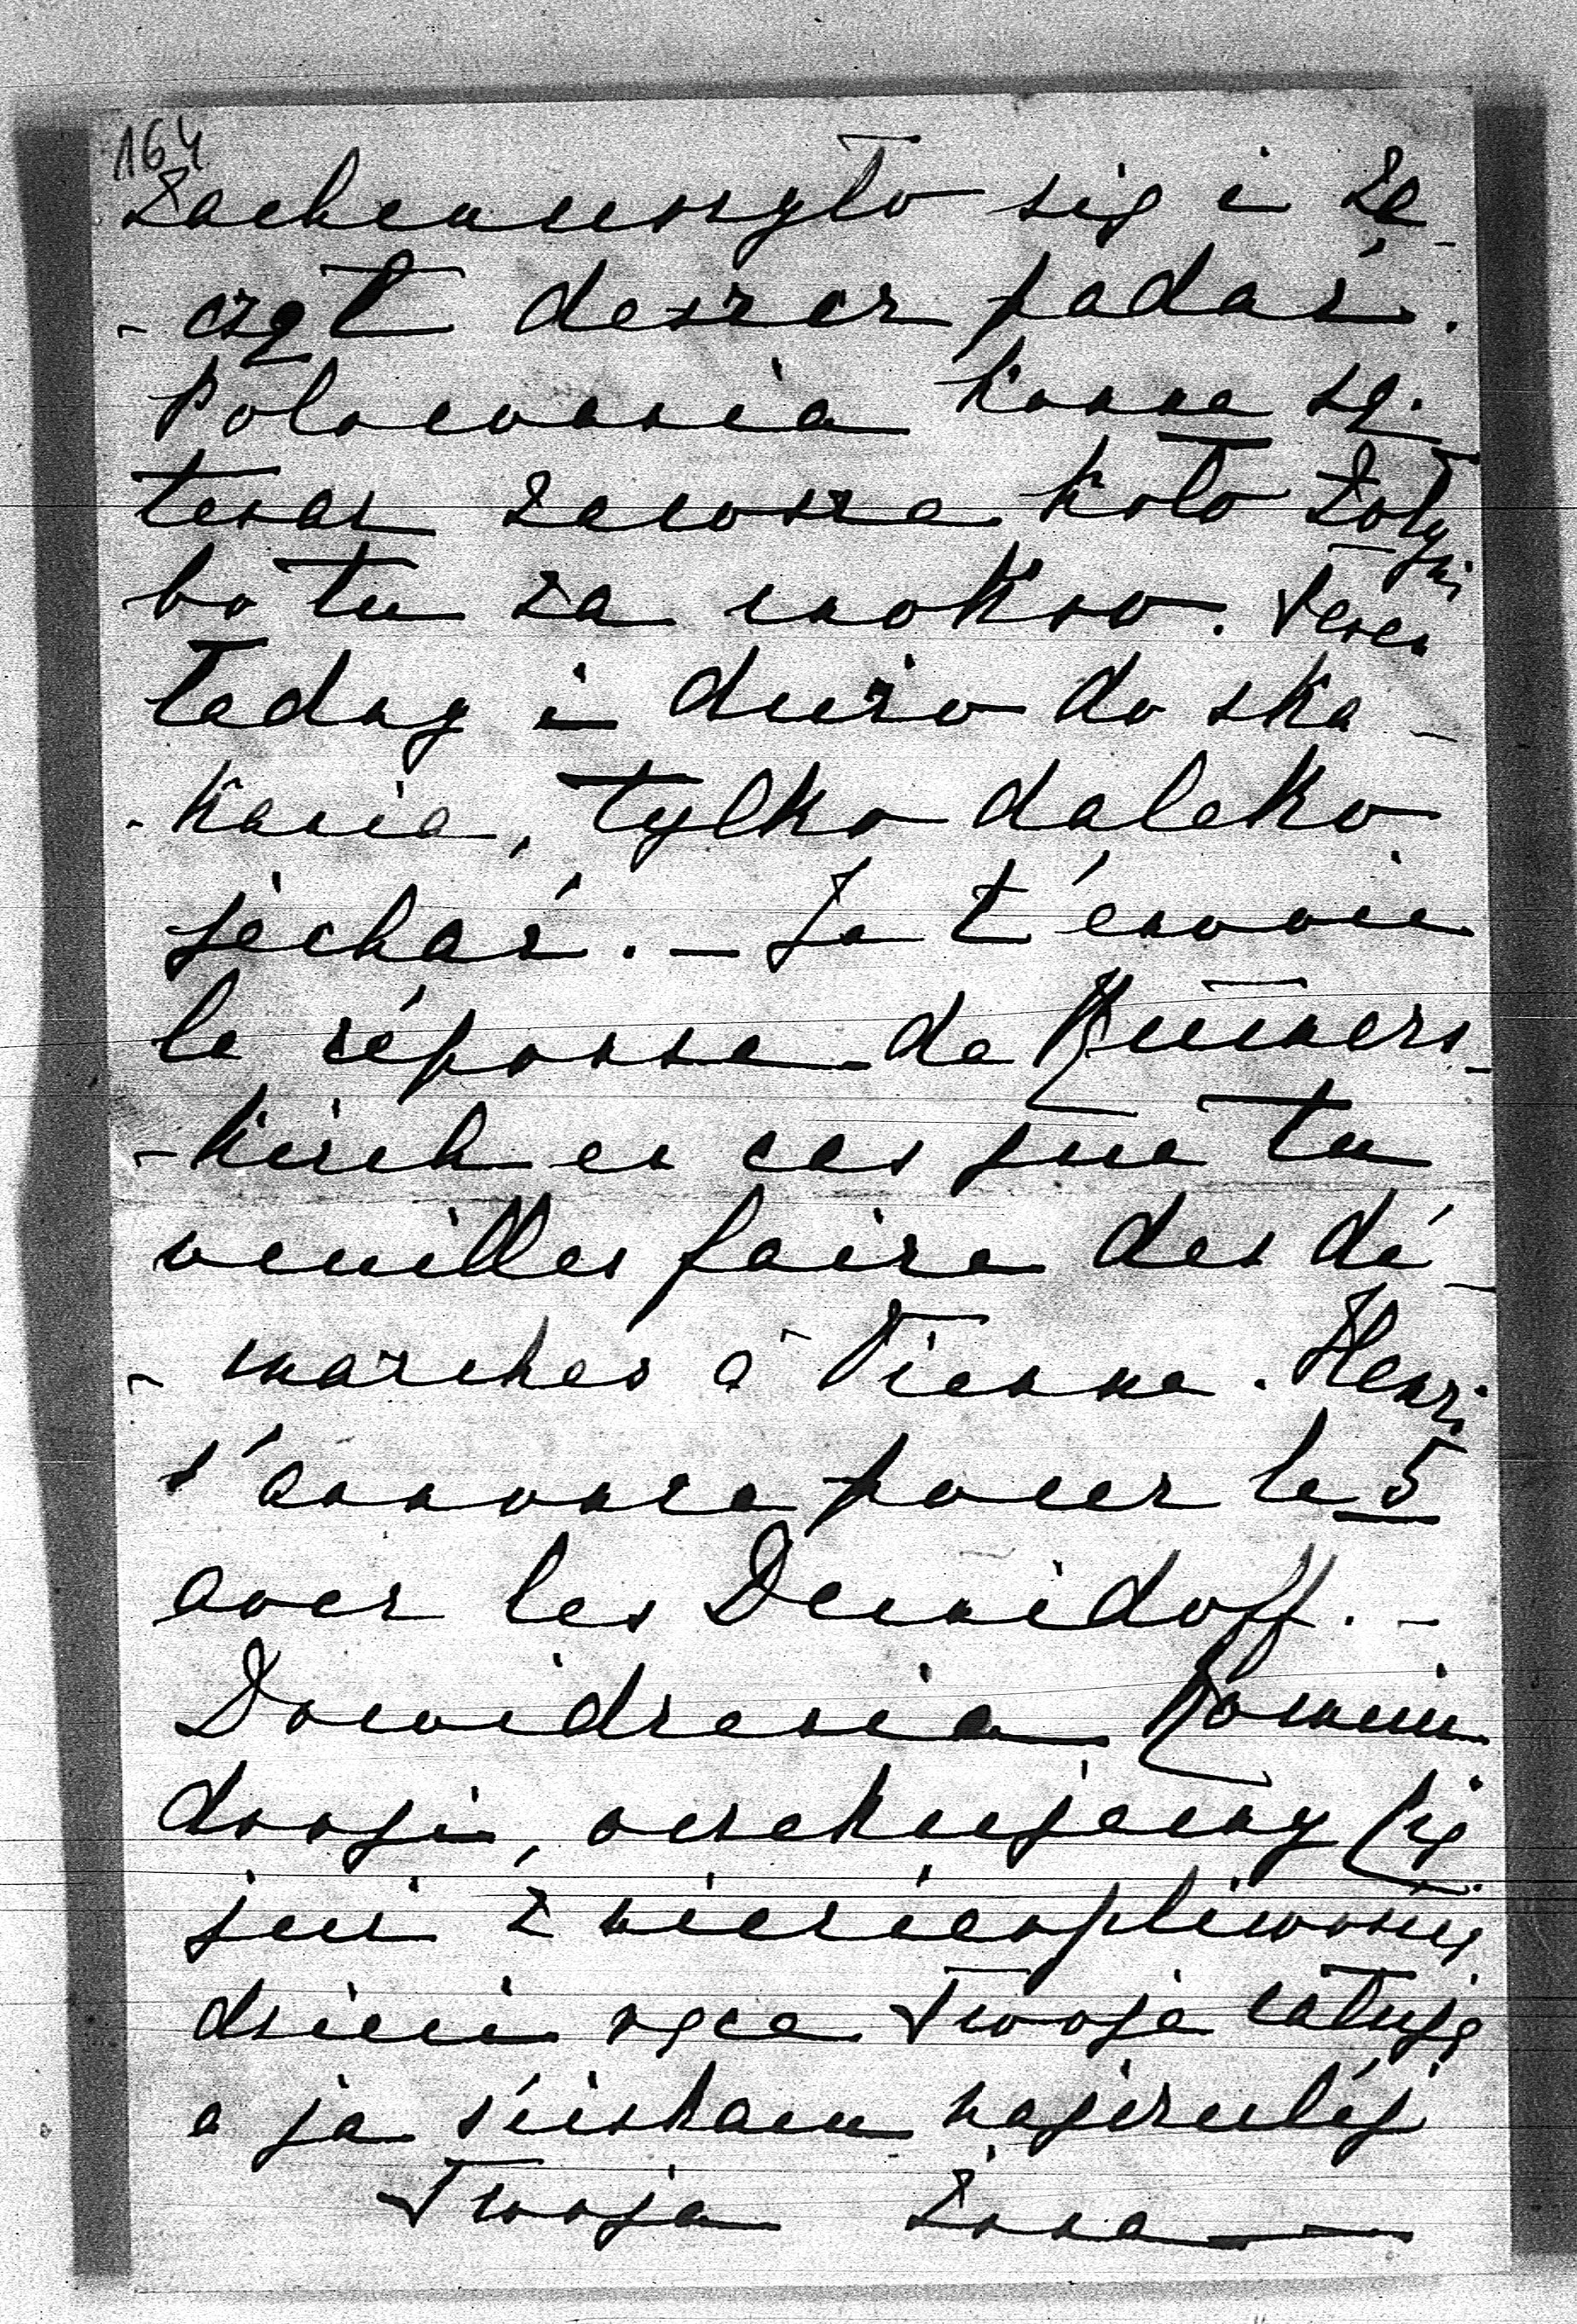 164
Zachmurzyło się i za
- czął deszcz padać.
Polowania konne są
teraz zawsze koło Żołyni
bo tu za mokro. Teren
ładny i dużo do ska -
- kania, tylko daleko
jechać. - Je t'envoie
la réponse de Küners -
- kirch en cas que tu
veuilles faire des dé -
- marches à Vienne. Henri
s'annonce pour le 5
avec les Demidoff. -
Dowidzenia Komin
drogi, oczekujemy Cię
już z niecierpliwością
dzieci ręce Twoje całują
a ja ściskam najczulej
Twoja Żona